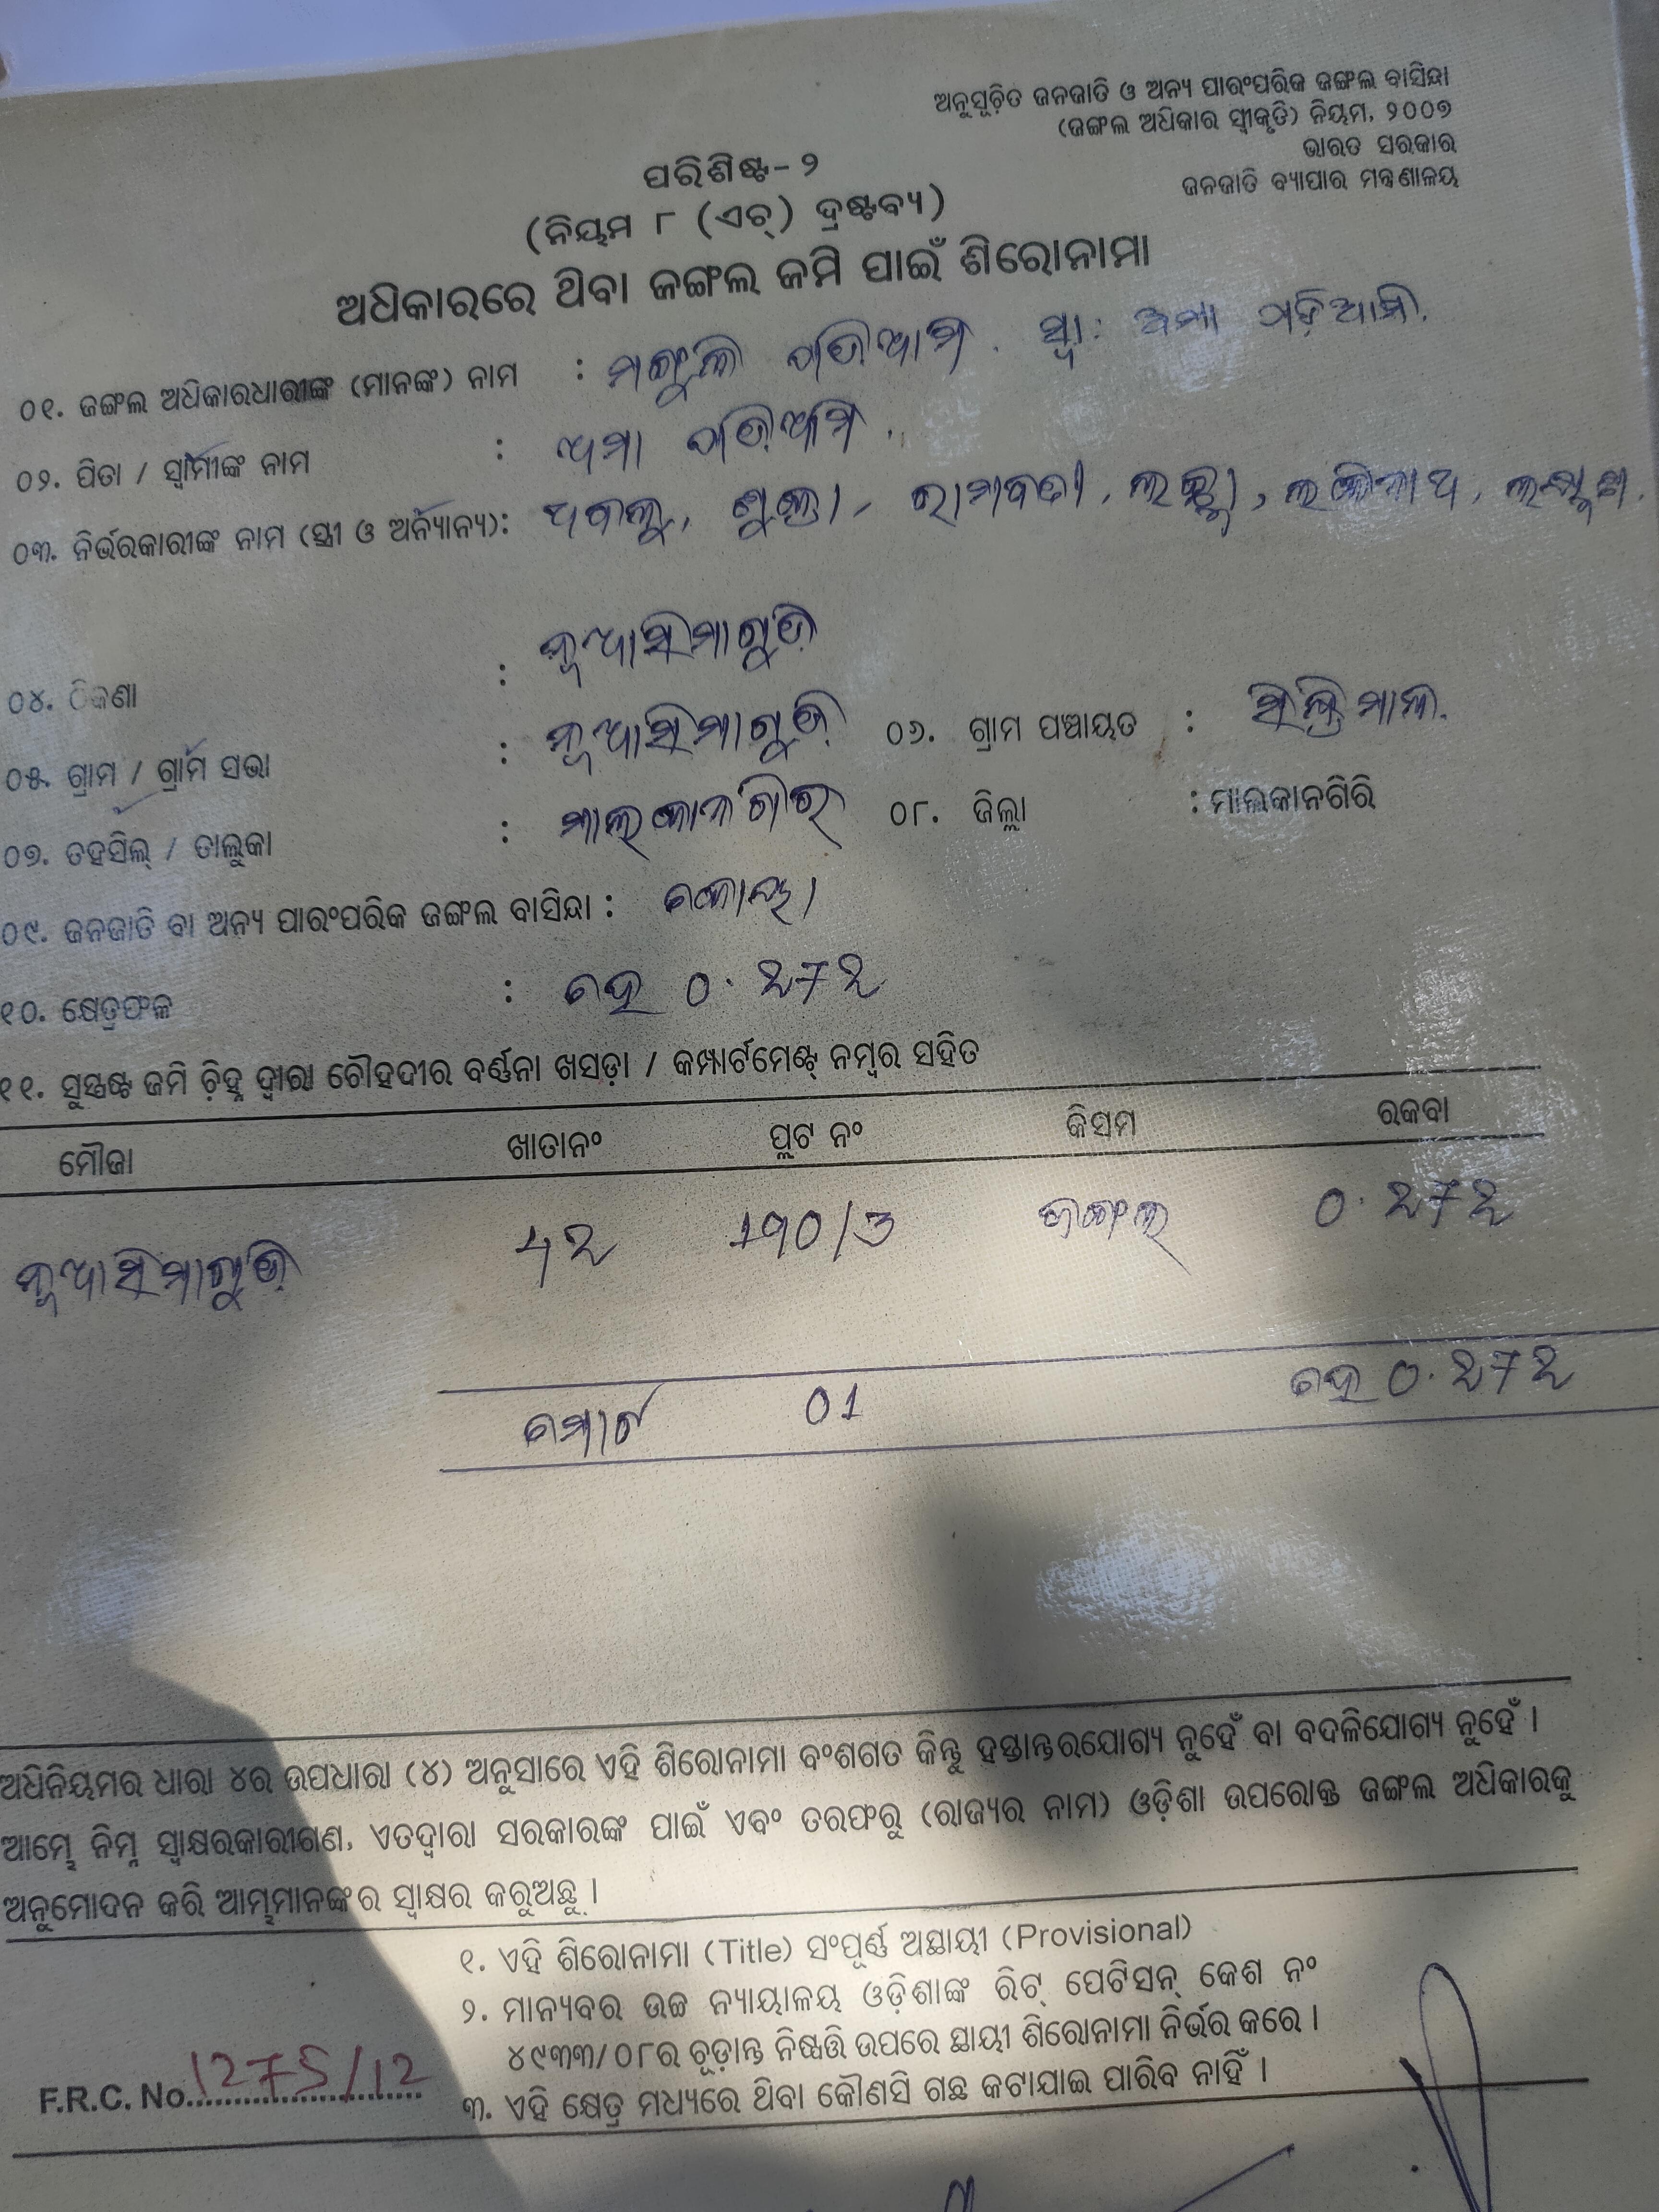 ଅନୁସୂଚିତ ଜନଜାତି ଓ ଅନ୍ୟ ପାରଂପରିକ ଜଙ୍ଗଲ ବାସିନ୍ଦା
(ଜଙ୍ଗଲ ଅଧିକାର ସ୍ୱୀକୃତି) ନିୟମ, ୨୦୦୭
ଭାରତ ସରକାର
ଜନଜାତି ବ୍ୟାପାର ମନ୍ତ୍ରଣାଳୟ
ପରିଶିଷ୍ଟ-୨
(ନିୟମ ୮ (ଏଚ୍) ଦ୍ରଷ୍ଟବ୍ୟ)
ଅଧିକାରରେ ଥିବା ଜଙ୍ଗଲ ଜମି ପାଇଁ ଶିରୋନାମା
୦୧. ଜଙ୍ଗଲ ଅଧିକାରଧାରୀଙ୍କ (ମାନଙ୍କ) ନାମ : ସ୍ୱା:
୦୨. ପିତା / ସ୍ୱାମୀଙ୍କ ନାମ :
୦୩. ନିର୍ଭରକାରୀଙ୍କ ନାମ (ସ୍ତ୍ରୀ ଓ ଅନ୍ୟାନ୍ୟ): ରାମବତୀ,
୦୪. ଠିକଣା : ନୂଆସିମାଗୁଡ଼ି
୦୫. ଗ୍ରାମ / ଗ୍ରାମ ସଭା : ନୂଆସିମାଗୁଡ଼ି ୦୬. ଗ୍ରାମ ପଞ୍ଚାୟତ :
୦୭. ତହସିଲ୍ / ତାଲୁକା : ମାଲକାନଗିରି ୦୮. ଜିଲ୍ଲା : ମାଲକାନଗିରି
୦୯. ଜନଜାତି ବା ଅନ୍ୟ ପାରଂପରିକ ଜଙ୍ଗଲ ବାସିନ୍ଦା : କୋୟା
୧୦. କ୍ଷେତ୍ରଫଳ : ହେ 0.272
୧୧. ସୁସ୍ପଷ୍ଟ ଜମି ଚିହ୍ନ ଦ୍ୱାରା ଚୌହଦୀର ବର୍ଣ୍ଣନା ଖସଡ଼ା / କମ୍ପାର୍ଟମେଣ୍ଟ୍ ନମ୍ବର ସହିତ
ମୌଜା ଖାତାନଂ ପ୍ଲଟ ନଂ କିସମ ରକବା
ନୂଆସିମାଗୁଡ଼ି 42 ଜଙ୍ଗଲ 0.272
ମୋଟ 01 ହେ 0.272
ଅଧିନିୟମର ଧାରା ୪ର ଉପଧାରା (୪) ଅନୁସାରେ ଏହି ଶିରୋନାମା ବଂଶଗତ କିନ୍ତୁ ହସ୍ତାନ୍ତରଯୋଗ୍ୟ ନୁହେଁ ବା ବଦଳିଯୋଗ୍ୟ ନୁହେଁ ।
ଆମ୍ଭେ ନିମ୍ନ ସ୍ୱାକ୍ଷରକାରୀଗଣ, ଏତଦ୍ୱାରା ସରକାରଙ୍କ ପାଇଁ ଏବଂ ତରଫରୁ (ରାଜ୍ୟର ନାମ) ଓଡ଼ିଶା ଉପରୋକ୍ତ ଜଙ୍ଗଲ ଅଧିକାରକୁ
ଅନୁମୋଦନ କରି ଆମ୍ଭମାନଙ୍କର ସ୍ୱାକ୍ଷର କରୁଅଛୁ ।
୧. ଏହି ଶିରୋନାମା (Title) ସଂପୂର୍ଣ୍ଣ ଅସ୍ଥାୟୀ (Provisional)
୨. ମାନ୍ୟବର ଉଚ୍ଚ ନ୍ୟାୟାଳୟ ଓଡ଼ିଶାଙ୍କ ରିଟ୍ ପେଟିସନ୍ କେଶ ନଂ
୪୯୩୩/୦୮ର ଚୂଡ଼ାନ୍ତ ନିଷ୍ପତ୍ତି ଉପରେ ସ୍ଥାୟୀ ଶିରୋନାମା ନିର୍ଭର କରେ ।
୩. ଏହି କ୍ଷେତ୍ର ମଧ୍ୟରେ ଥିବା କୌଣସି ଗଛ କଟାଯାଇ ପାରିବ ନାହିଁ ।
F.R.C. No. 1275/12